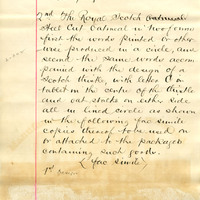 2nd The Royal Scotch Oatmeal
Steel Cut Oatmeal in two forms
first the words printed or other
wise produced in a circle, and
second the same words accom
panied with the design of a
Scotch thistle, with letter C on
tablet in the centre of the thistle
and oat stalks on either side
all in lined circle as shown
in the following fac simile
copies thereof to be used on
or attached to the packages
containing such goods.
(fac simile)
1st